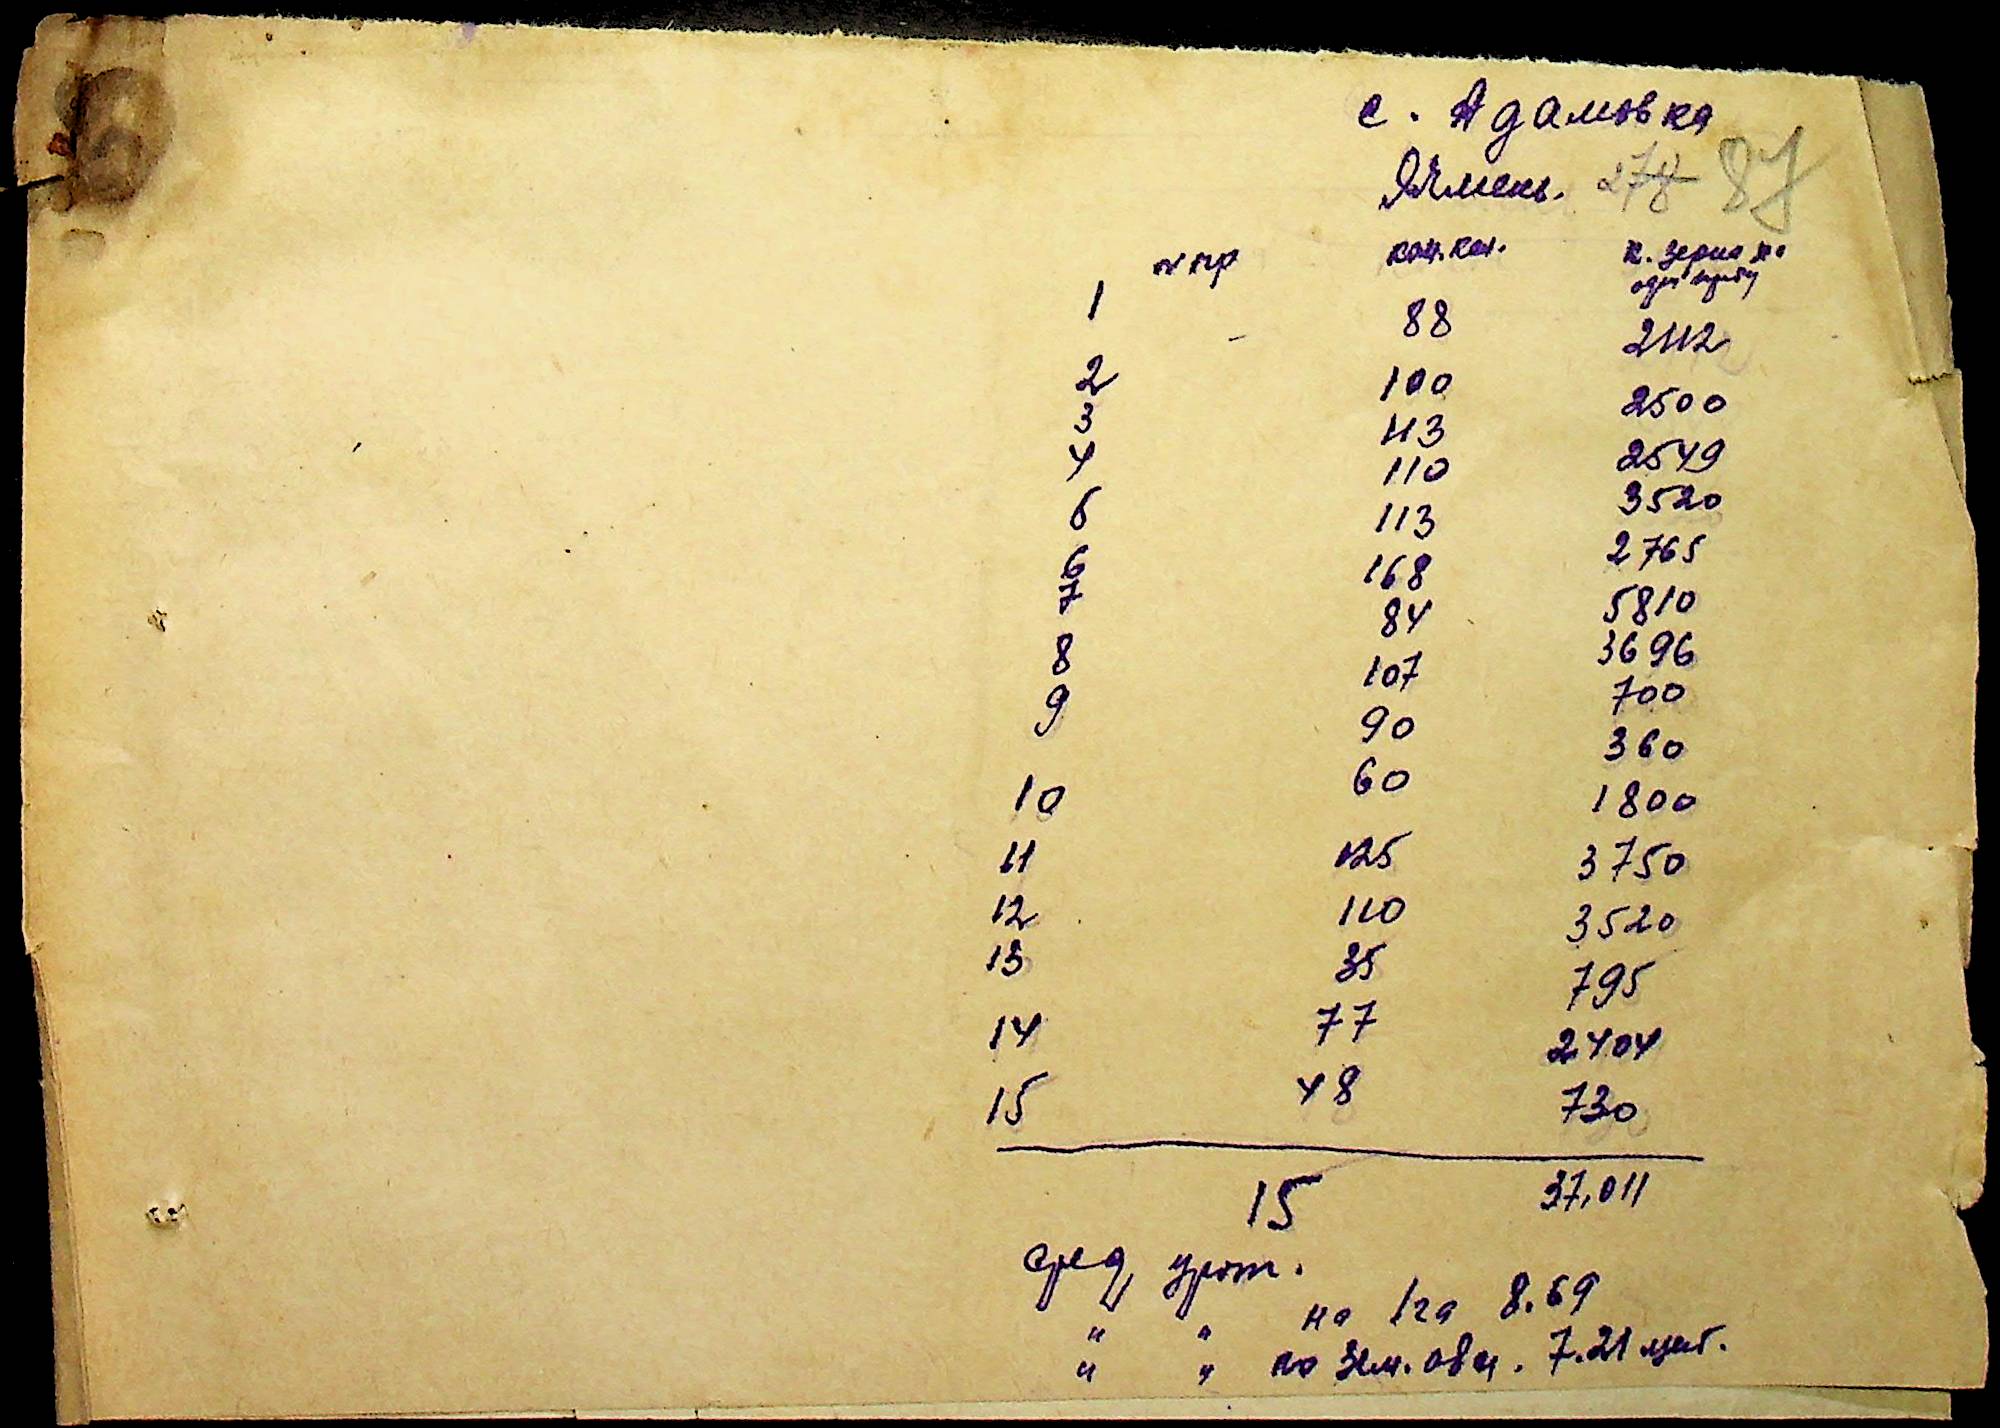 с. Адамовка
Ячмень. 278 87
№ пр кол. кол. к. зерна на
одну пробу
1 88 2112
2 100 2500
3 113 2549
4 110 3520
5 113 2765
6 168 5810
7 84 3696
8 107 700
9 90 360
10 60 1800
11 125 3750
12 110 3520
13 35 795
14 77 2404
15 48 730
15 37,011
сред, урож.
" " на 1 га 8.69
" " по Зем. общ. 7.21 цнт.